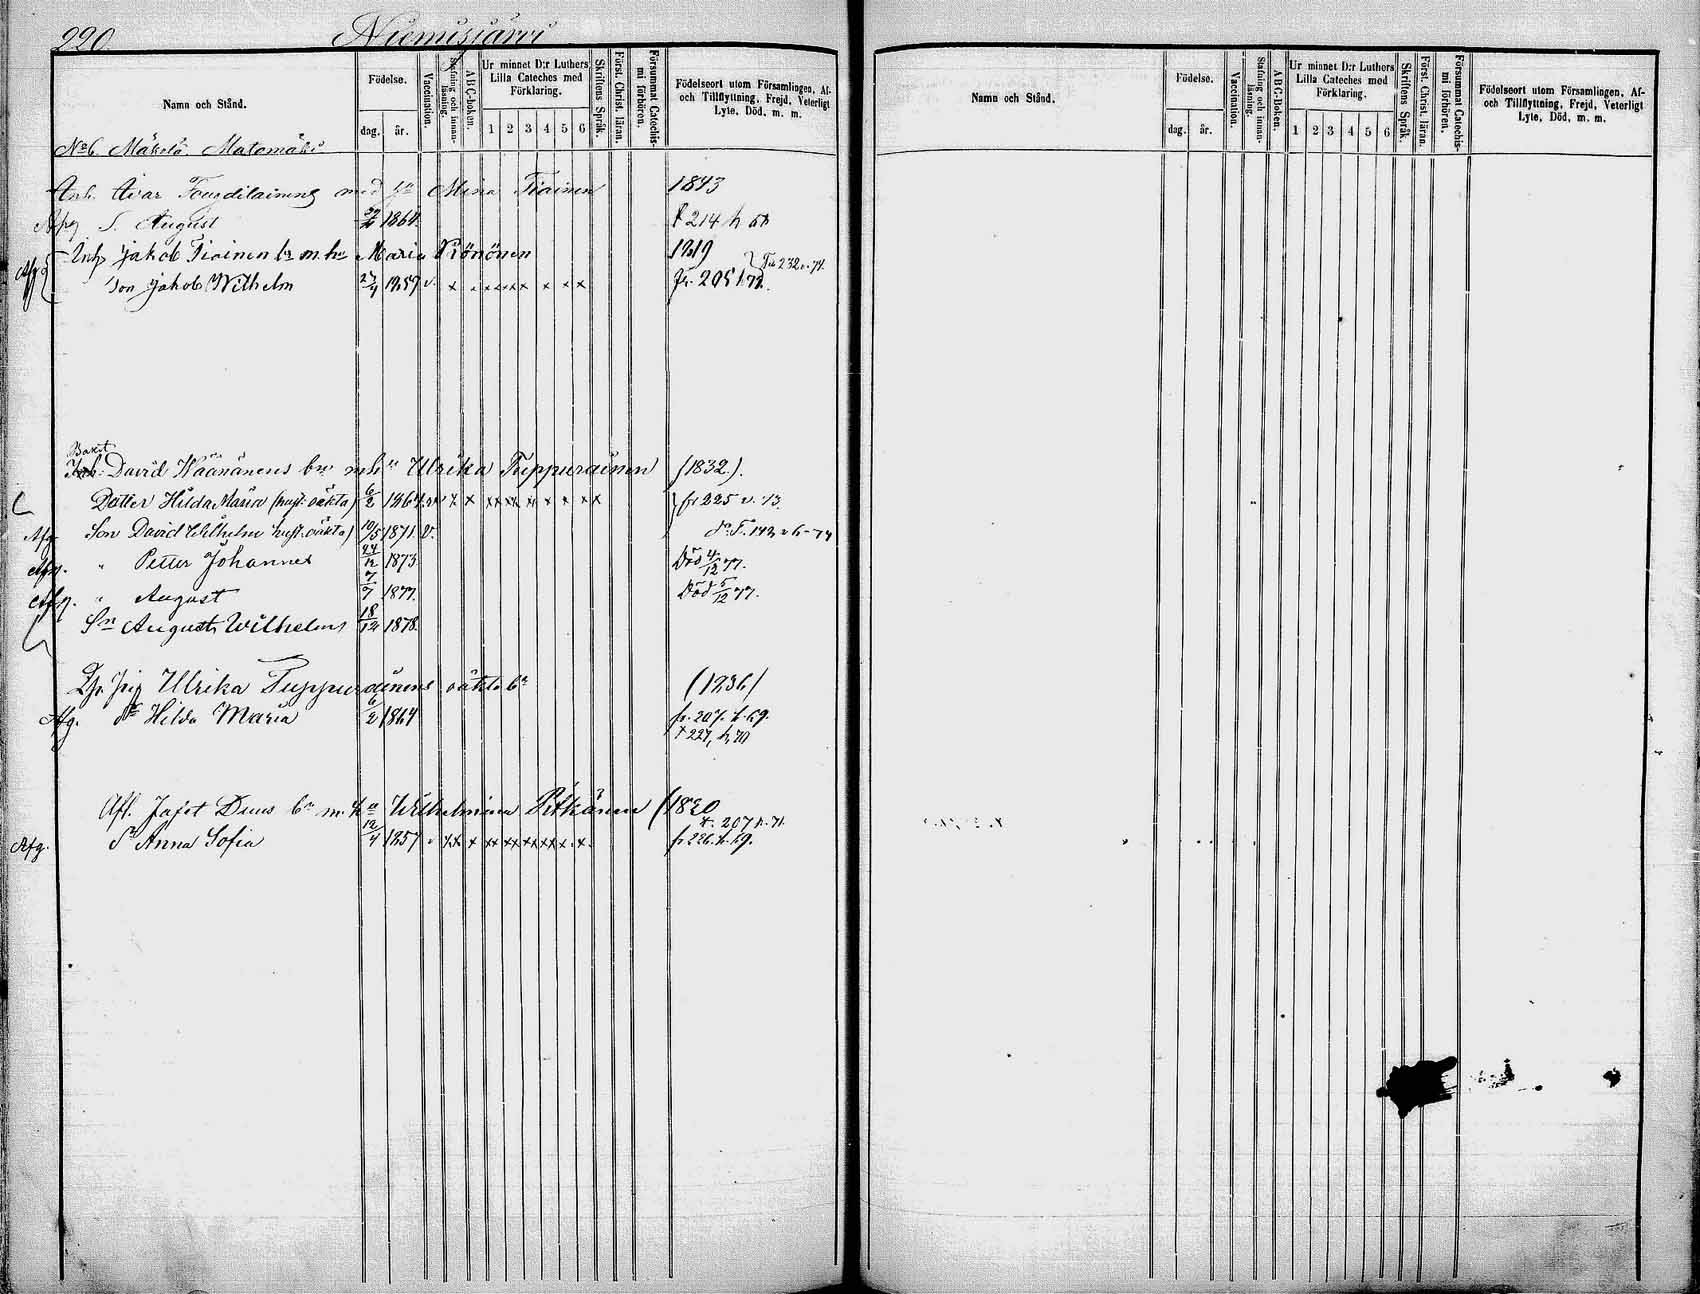 220 Niemisjärvi
Namn och Stånd. Födelse. dag. år. Vaccination. Stafning och innan-läsning. ABC-boken. Ur minnet D:r Luthers Lilla Cateches med Förklaring. 1 2 3 4 5 6 Skriftens Språk. Först. Christ. läran. Försummat Catechis-mi förhören. Födelseort utom Församlingen, Af- och Tillflyttning, Frejd, Veterligt Lyte, Död, m. m.
No 6. Mäkelä Matomäki
Inh. Ivar med Mina Tiainen 1843
Afg. S. August 1864 214
Inh. Jakob Tiainen br m. hu Maria Rönönen 1819
Afg. Son Jakob Wilhelm 1859 v. x x x x x x fr. 205 Till 232 v. 74.
Backst
Inh: David Wäänänens br m h Ulrika Tuppurainen (1832).
Dotter Hilda Maria (hust. oäkta) 6/2 1864 x x x x x x x x fr 225 v. 73.
Afg. Son David Wilhelm hust. oäkta) 10/5 1871. v. 143
Afg. " Petter Johannes 24/12 1873. Död 4/12 77.
Afg. " August 7/7 1877. Död 5/12 77.
Sn August Wilhelm 18/12 1878.
Pig Ulrika Tuppurainens oäkta br (1836)
Afg. Dr Hilda Maria 6/2 1864 fr. 207. h. 69.
227, h. 70
Afl. Jafet Duus br m. h Wilhelmina Pitkänen (1820
Afg. Dr Anna Sofia 12/4 1857 v x x x x x x x x x x. fr 226. h. 69. 207 h. 71.
Namn och Stånd. Födelse. dag. år. Vaccination. Stafning och innan-läsning. ABC-Boken. Ur minnet D:r Luthers Lilla Cateches med Förklaring. 1 2 3 4 5 6 Skriftens Språk. Först. Christ. läran. Försummat Catechis-mi förhören. Födelseort utom Församlingen, Af- och Tillflyttning, Frejd, Veterligt Lyte, Död, m. m.